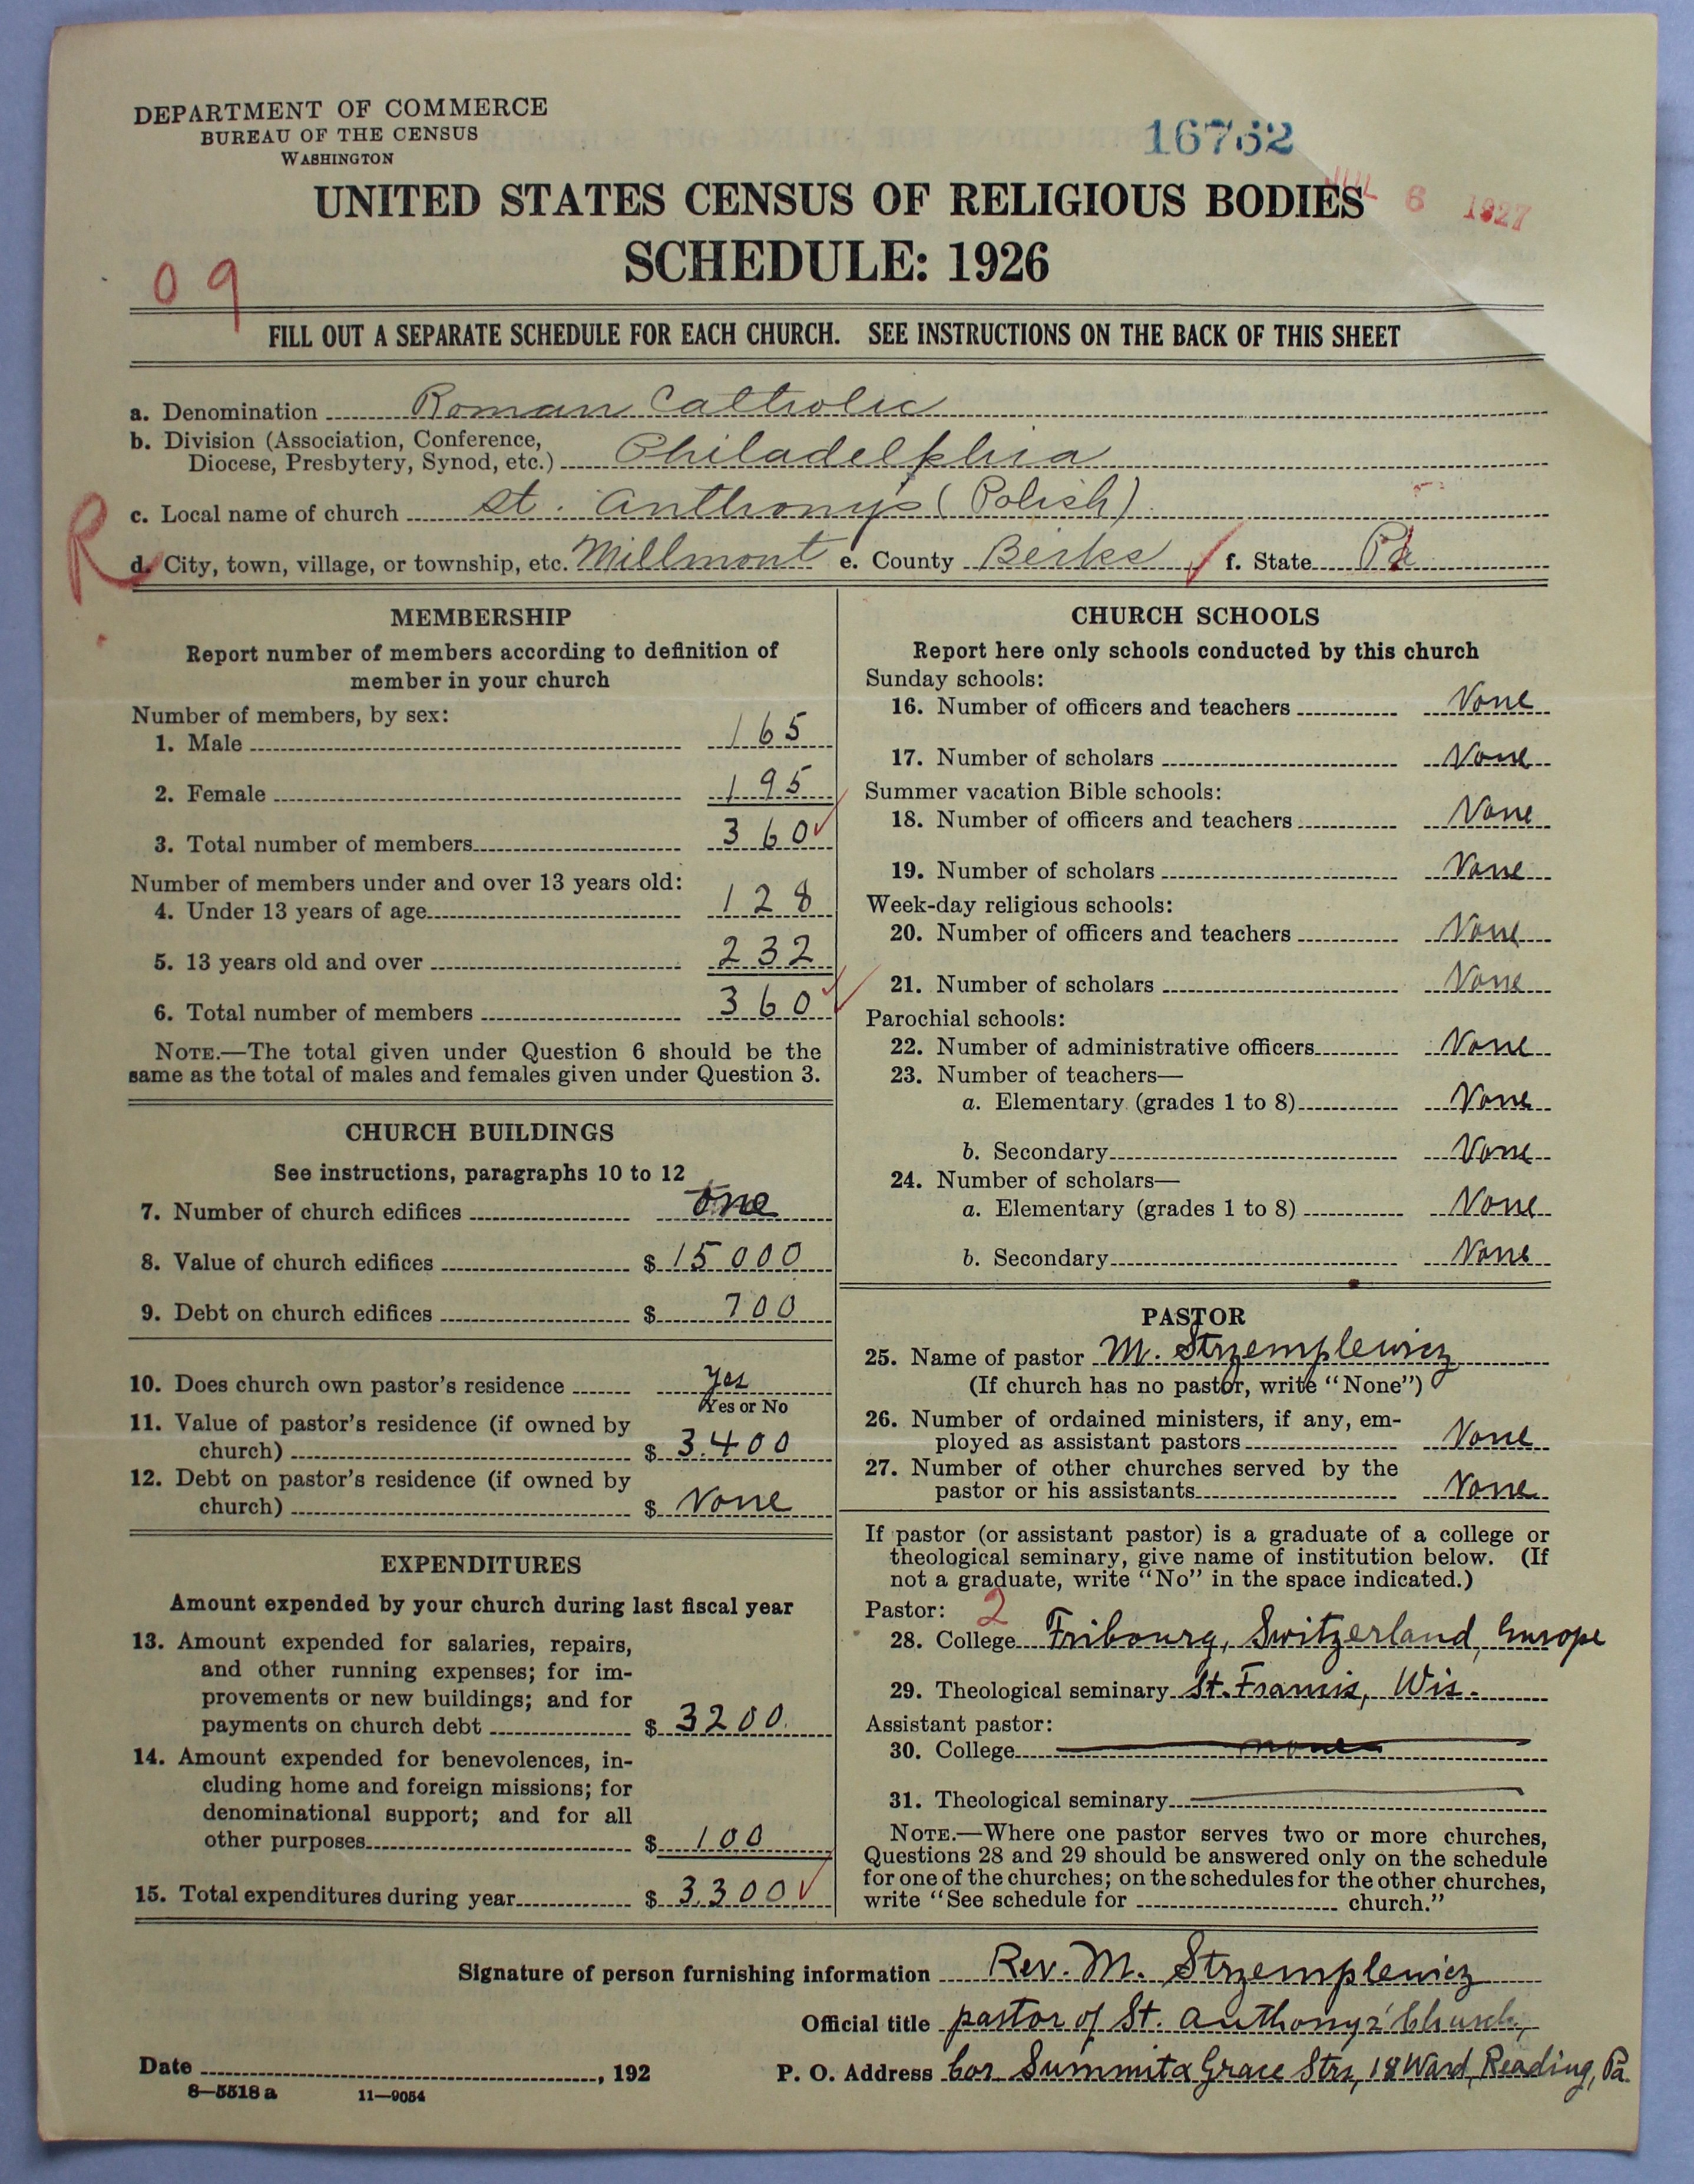 DEPARTMENT OF COMMERCE
BUREAU OF THE CENSUS
WASHINGTON
16762
JUL 6 1927
UNITED STATES CENSUS OF RELIGIOUS BODIES
SCHEDULE: 1926
09
FILL OUT A SEPARATE SCHEDULE FOR EACH CHURCH. SEE INSTRUCTIONS ON THE BACK OF THIS SHEET
a. Denomination Roman Catholic
b. Division (Association, Conference,
Diocese, Presbytery, Synod, etc.) Philadelphia
c. Local name of church St. Anthony's (Polish)
R
d. City, town, village, or township, etc. Millmont e. County Berks f. State Pa
MEMBERSHIP
Report number of members according to definition of
member in your church
Number of members, by sex:
1. Male 165
2. Female 195
3. Total number of members 360
Number of members under and over 13 years old:
4. Under 13 years of age 128
5. 13 years old and over 232
6. Total number of members 360
NOTE.—The total given under Question 6 should be the
same as the total of males and females given under Question 3.
CHURCH BUILDINGS
See instructions, paragraphs 10 to 12
7. Number of church edifices One
8. Value of church edifices $ 15000
9. Debt on church edifices $ 700
10. Does church own pastor's residence Yes
Yes or No
11. Value of pastor's residence (if owned by
church) $ 3.400
12. Debt on pastor's residence (if owned by
church) $ None
EXPENDITURES
Amount expended by your church during last fiscal year
13. Amount expended for salaries, repairs,
and other running expenses; for im-
provements or new buildings; and for
payments on church debt $ 3200
14. Amount expended for benevolences, in-
cluding home and foreign missions; for
denominational support; and for all
other purposes $ 100
15. Total expenditures during year $ 3300
CHURCH SCHOOLS
Report here only schools conducted by this church
Sunday schools:
16. Number of officers and teachers None
17. Number of scholars None
Summer vacation Bible schools:
18. Number of officers and teachers None
19. Number of scholars None
Week-day religious schools:
20. Number of officers and teachers None
21. Number of scholars None
Parochial schools:
22. Number of administrative officers None
23. Number of teachers—
a. Elementary (grades 1 to 8) None
b. Secondary None
24. Number of scholars—
a. Elementary (grades 1 to 8) None
b. Secondary None
PASTOR
25. Name of pastor M. Strzemplewicz
(If church has no pastor, write "None")
26. Number of ordained ministers, if any, em-
ployed as assistant pastors None
27. Number of other churches served by the
pastor or his assistants None
If pastor (or assistant pastor) is a graduate of a college or
theological seminary, give name of institution below. (If
not a graduate, write "No" in the space indicated.)
Pastor: 2
28. College Fribourg, Switzerland, Europe
29. Theological seminary St. Francis, Wis.
Assistant pastor:
30. College none
31. Theological seminary
NOTE.—Where one pastor serves two or more churches,
Questions 28 and 29 should be answered only on the schedule
for one of the churches; on the schedules for the other churches,
write "See schedule for church."
Signature of person furnishing information Rev. M. Strzemplewicz
Official title pastor of St. Anthony's Church,
Date , 192 P. O. Address Cor Summit a Grace Strs, 18 Ward, Reading, Pa.
8—5518 a 11—9054